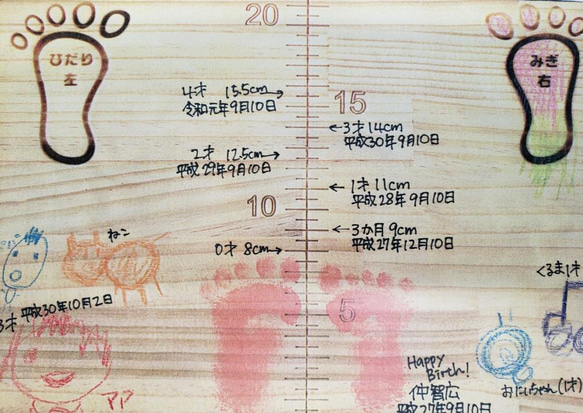 20
ひだり
左
みぎ
右
4才 15.5cm→
令和元年9月10日
15
←3才14cm
平成30年9月10日
2才 12.5cm→
平成29年9月10日
←1才11cm
平成28年9月10日
10
ねこ
←3か月9cm
平成27年12月10日
0才 8cm→
くるま1才
3才 平成30年10月2日
5
Happy
Birth!
仲智広
平成27年9月10日
おにいちゃん(1才)